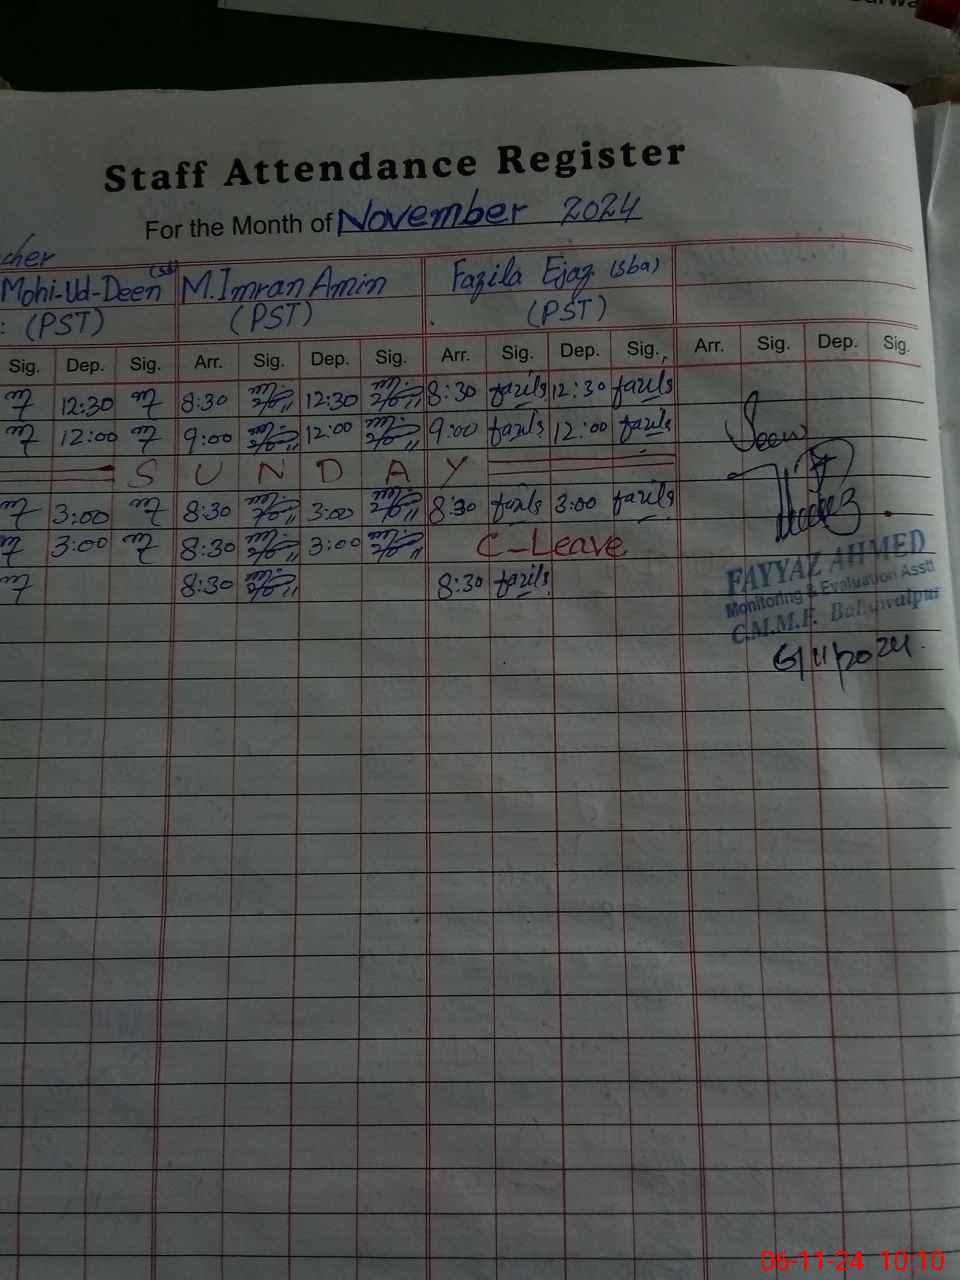 Staff Attendance Register
For the Month of November 2024
cher
Mohi-Ud-Deen M.Imran Amin Fazila Ejaz (Sba)
: (PST) (PST) (PST)
Sig. Dep. Sig. Arr. Sig. Dep. Sig. Arr. Sig. Dep. Sig. Arr. Sig. Dep. Sig.
12:30 8:30 12:30 8:30 fazila 12:30 fazila
12:00 9:00 12:00 9:00 fazila 12:00 fazila
Seen
S U N D A Y
3:00 8:30 3:00 8:30 fazila 3:00 fazila
3:00 8:30 3:00 C-Leave
8:30 8:30 fazila
FAYYAZ AHMED
Monitoring & Evaluation Asstt
C.M.M.F. Bahawalpur
6/11/2024.
06-11-24 10:10